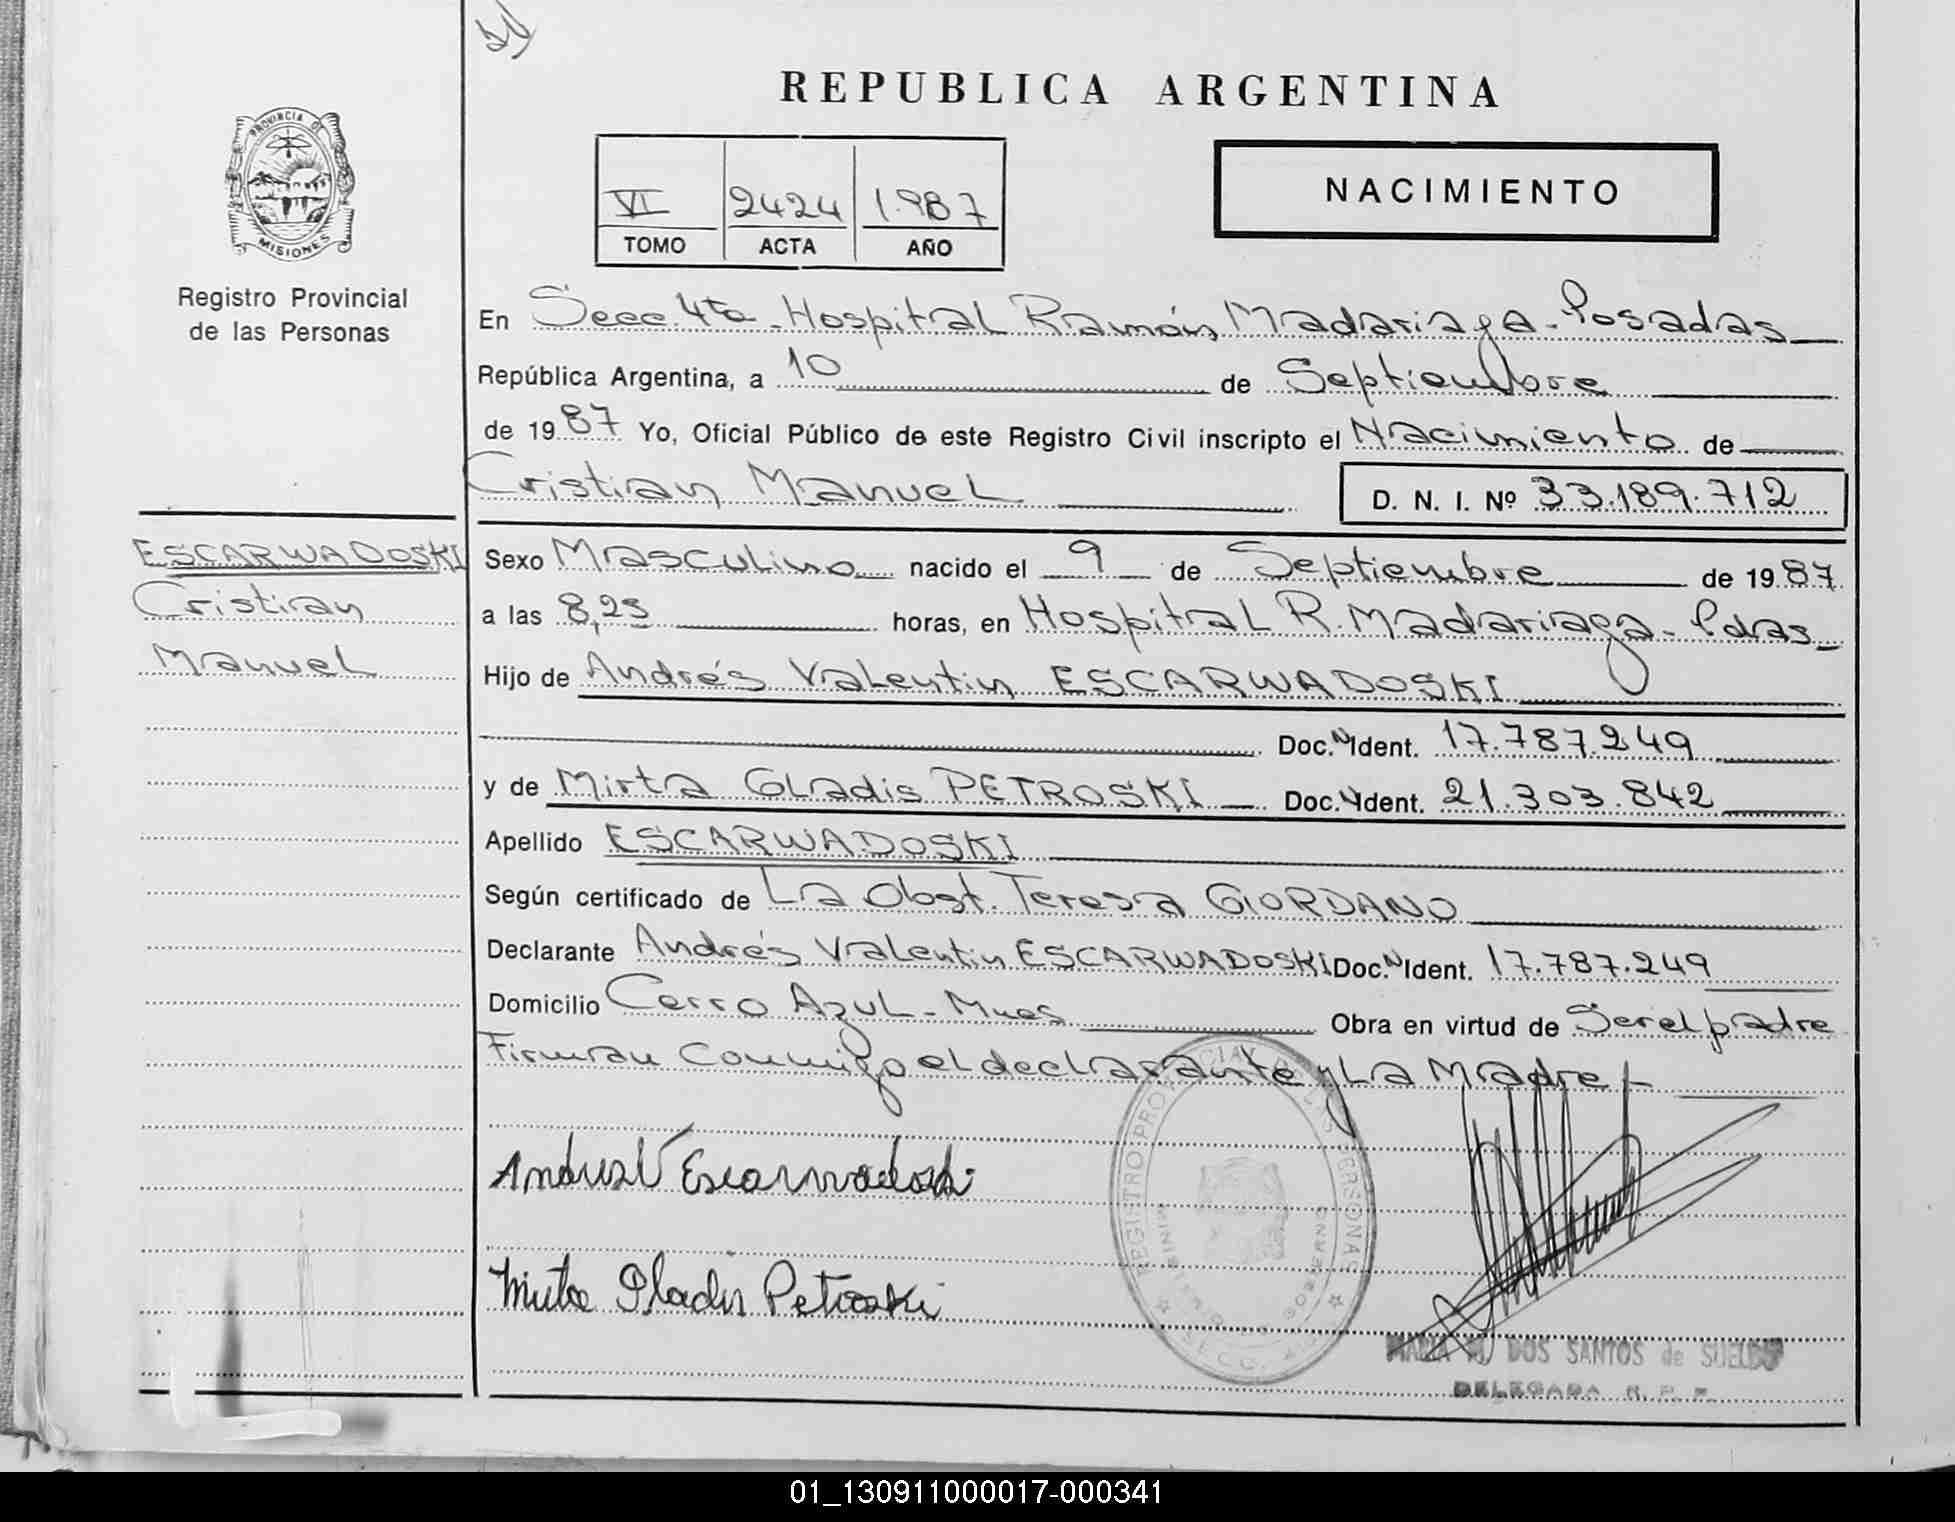 REPUBLICA ARGENTINA
PROVINCIA DE
MISIONES
Registro Provincial
de las Personas
VI 2424 1.987
TOMO ACTA AÑO
NACIMIENTO
En Secc. 4ta. Hospital Ramón Madariaga - Posadas
República Argentina, a 10 de Septiembre
de 1987 Yo, Oficial Público de este Registro Civil inscripto el Nacimiento de
Cristian Manuel D. N. I. Nº 33.189.712
ESCARWADOSKI
Cristian
Manuel
Sexo Masculino nacido el 9 de Septiembre de 1987
a las 8,25 horas, en Hospital R. Madariaga - Pdas
Hijo de Andrés Valentin ESCARWADOSKI
Doc. N Ident. 17.787.249
y de Mirta Gladis PETROSKI Doc. Ident. 21.303.842
Apellido ESCARWADOSKI
Según certificado de La Obst. Teresa GIORDANO
Declarante Andrés Valentin ESCARWADOSKI Doc. N Ident. 17.787.249
Domicilio Cerro Azul - Mnes Obra en virtud de Ser el padre
Firman Conmigo el declarante y La Madre
REGISTRO PROVINCIAL DE LAS PERSONAS
MINISTERIO DE GOBIERNO
SECC. 4
Andres V Escarwadoski
Mirta Gladis Petroski
MARIA DOS SANTOS de SUELDO
DELEGADA R. P. P.
01_130911000017-000341